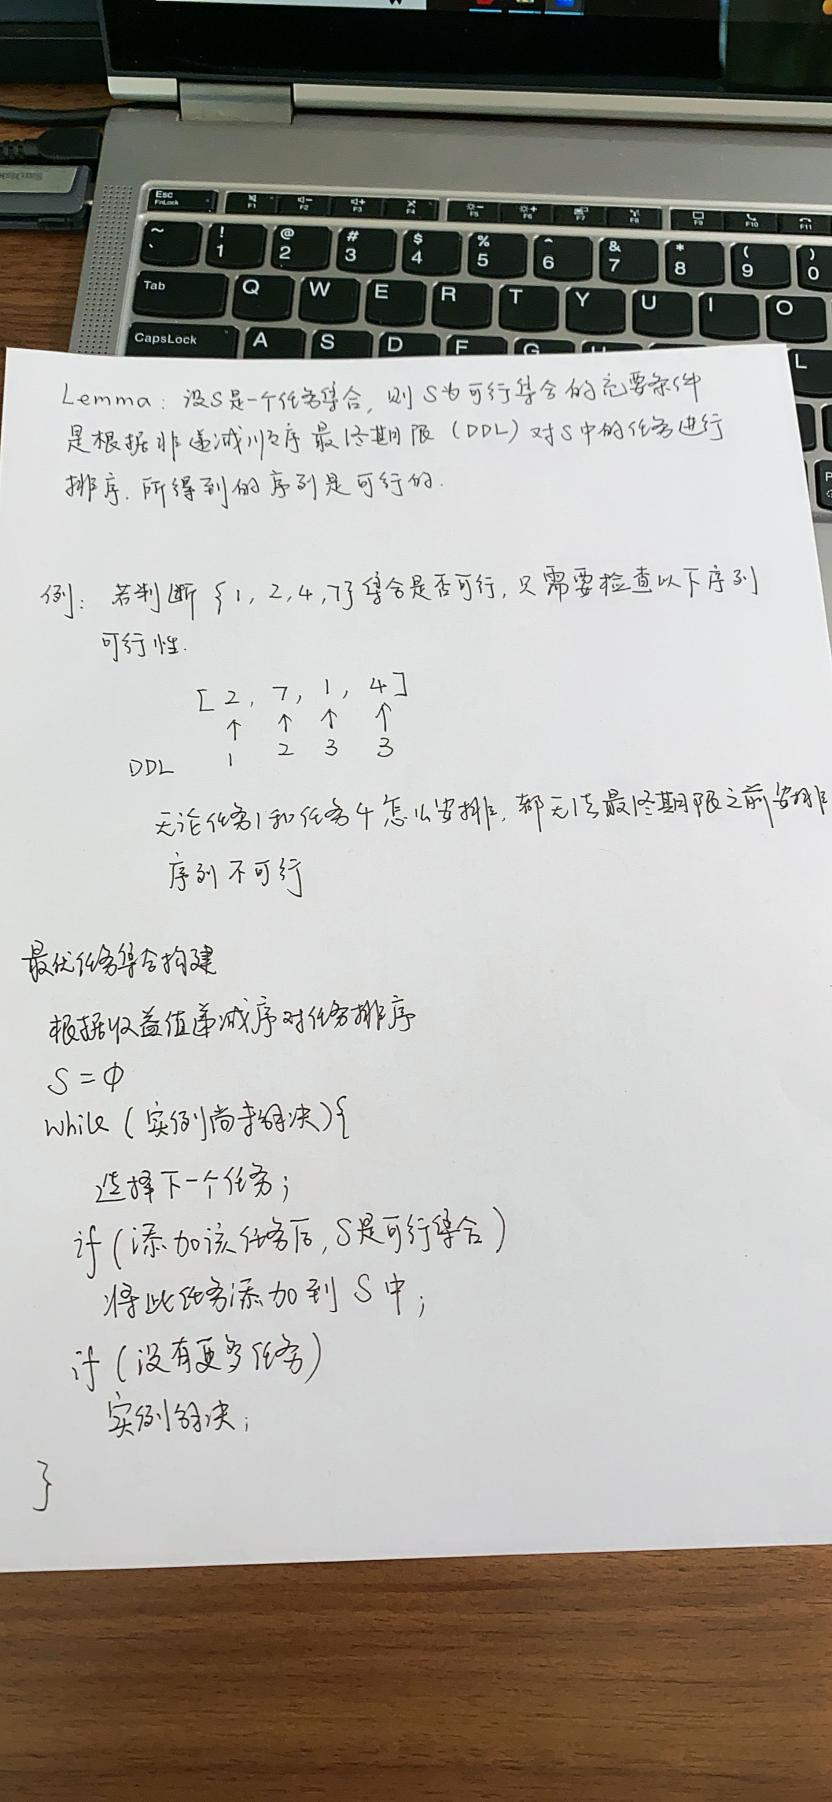 Esc
FnLock
F1
F2
F3
F4
F5
F6
F7
F8
F9
F10
F11
~ ` ! 1 @ 2 # 3 $ 4 % 5 ^ 6 & 7 * 8 ( 9 ) 0
Tab Q W E R T Y U I O
CapsLock A S D F G L
P
Lemma: 设S是一个任务集合, 则S为可行集合的充要条件
是根据非递减顺序最终期限(DDL)对S中的任务进行
排序.所得到的序列是可行的.
例: 若判断{1, 2, 4, 7}集合是否可行, 只需要检查以下序列
可行性.
[2, 7, 1, 4]
↑ ↑ ↑ ↑
DDL 1 2 3 3
无论任务1和任务4怎么安排, 都无法最终期限之前安排
序列不可行
最优任务集合构建
根据收益值递减序对任务排序
S=Φ
while(实例尚未解决){
选择下一个任务;
if(添加该任务后, S是可行集合)
将此任务添加到S中;
if(没有更多任务)
实例解决;
}